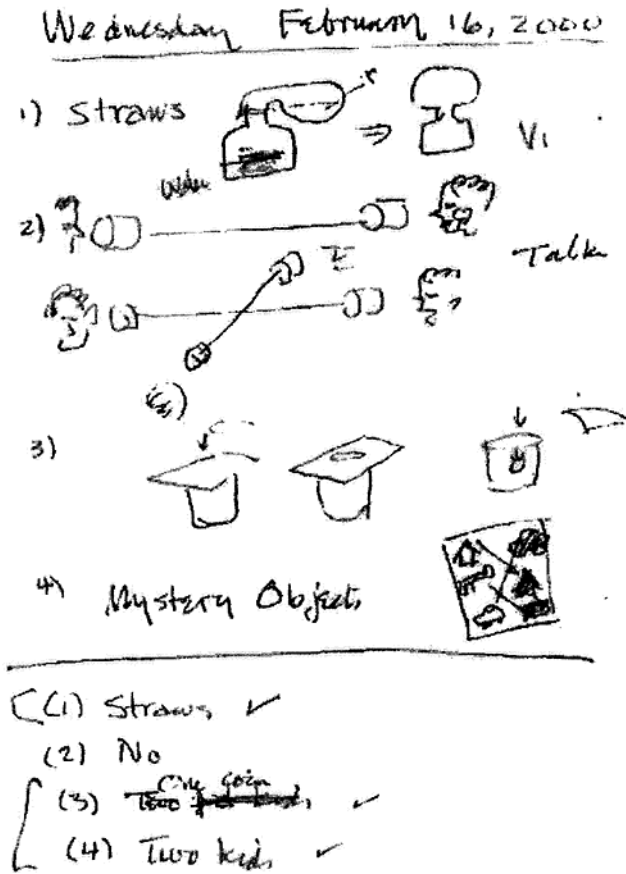 Wednesday February 16, 2000
1) Straws
Water
Vi
2)
Talk
3)
4) Mystery Object
(1) Straws ✓
(2) No
One coin
(3) Two ✓
(4) Two kids ✓